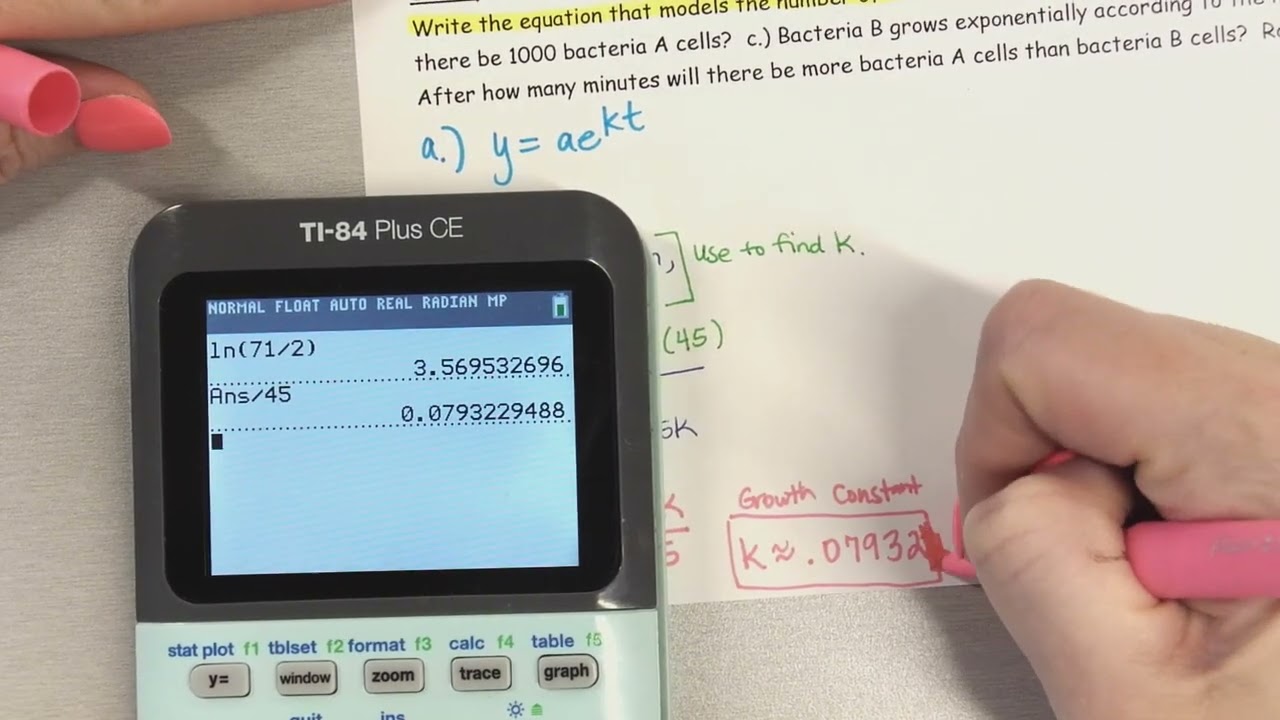 Write the equation that models the
there be 1000 bacteria A cells? c.) Bacteria B grows exponentially according to the
After how many minutes will there be more bacteria A cells than bacteria B cells?
a.) y = ae^kt
use to find k.
(45)
5k
5
Growth Constant
k ≈ .07932
TI-84 Plus CE
NORMAL FLOAT AUTO REAL RADIAN MP
ln(71/2)
3.569532696
Ans/45
0.0793229488
stat plot f1 tblset f2 format f3 calc f4 table f5
y= window zoom trace graph
quit ins